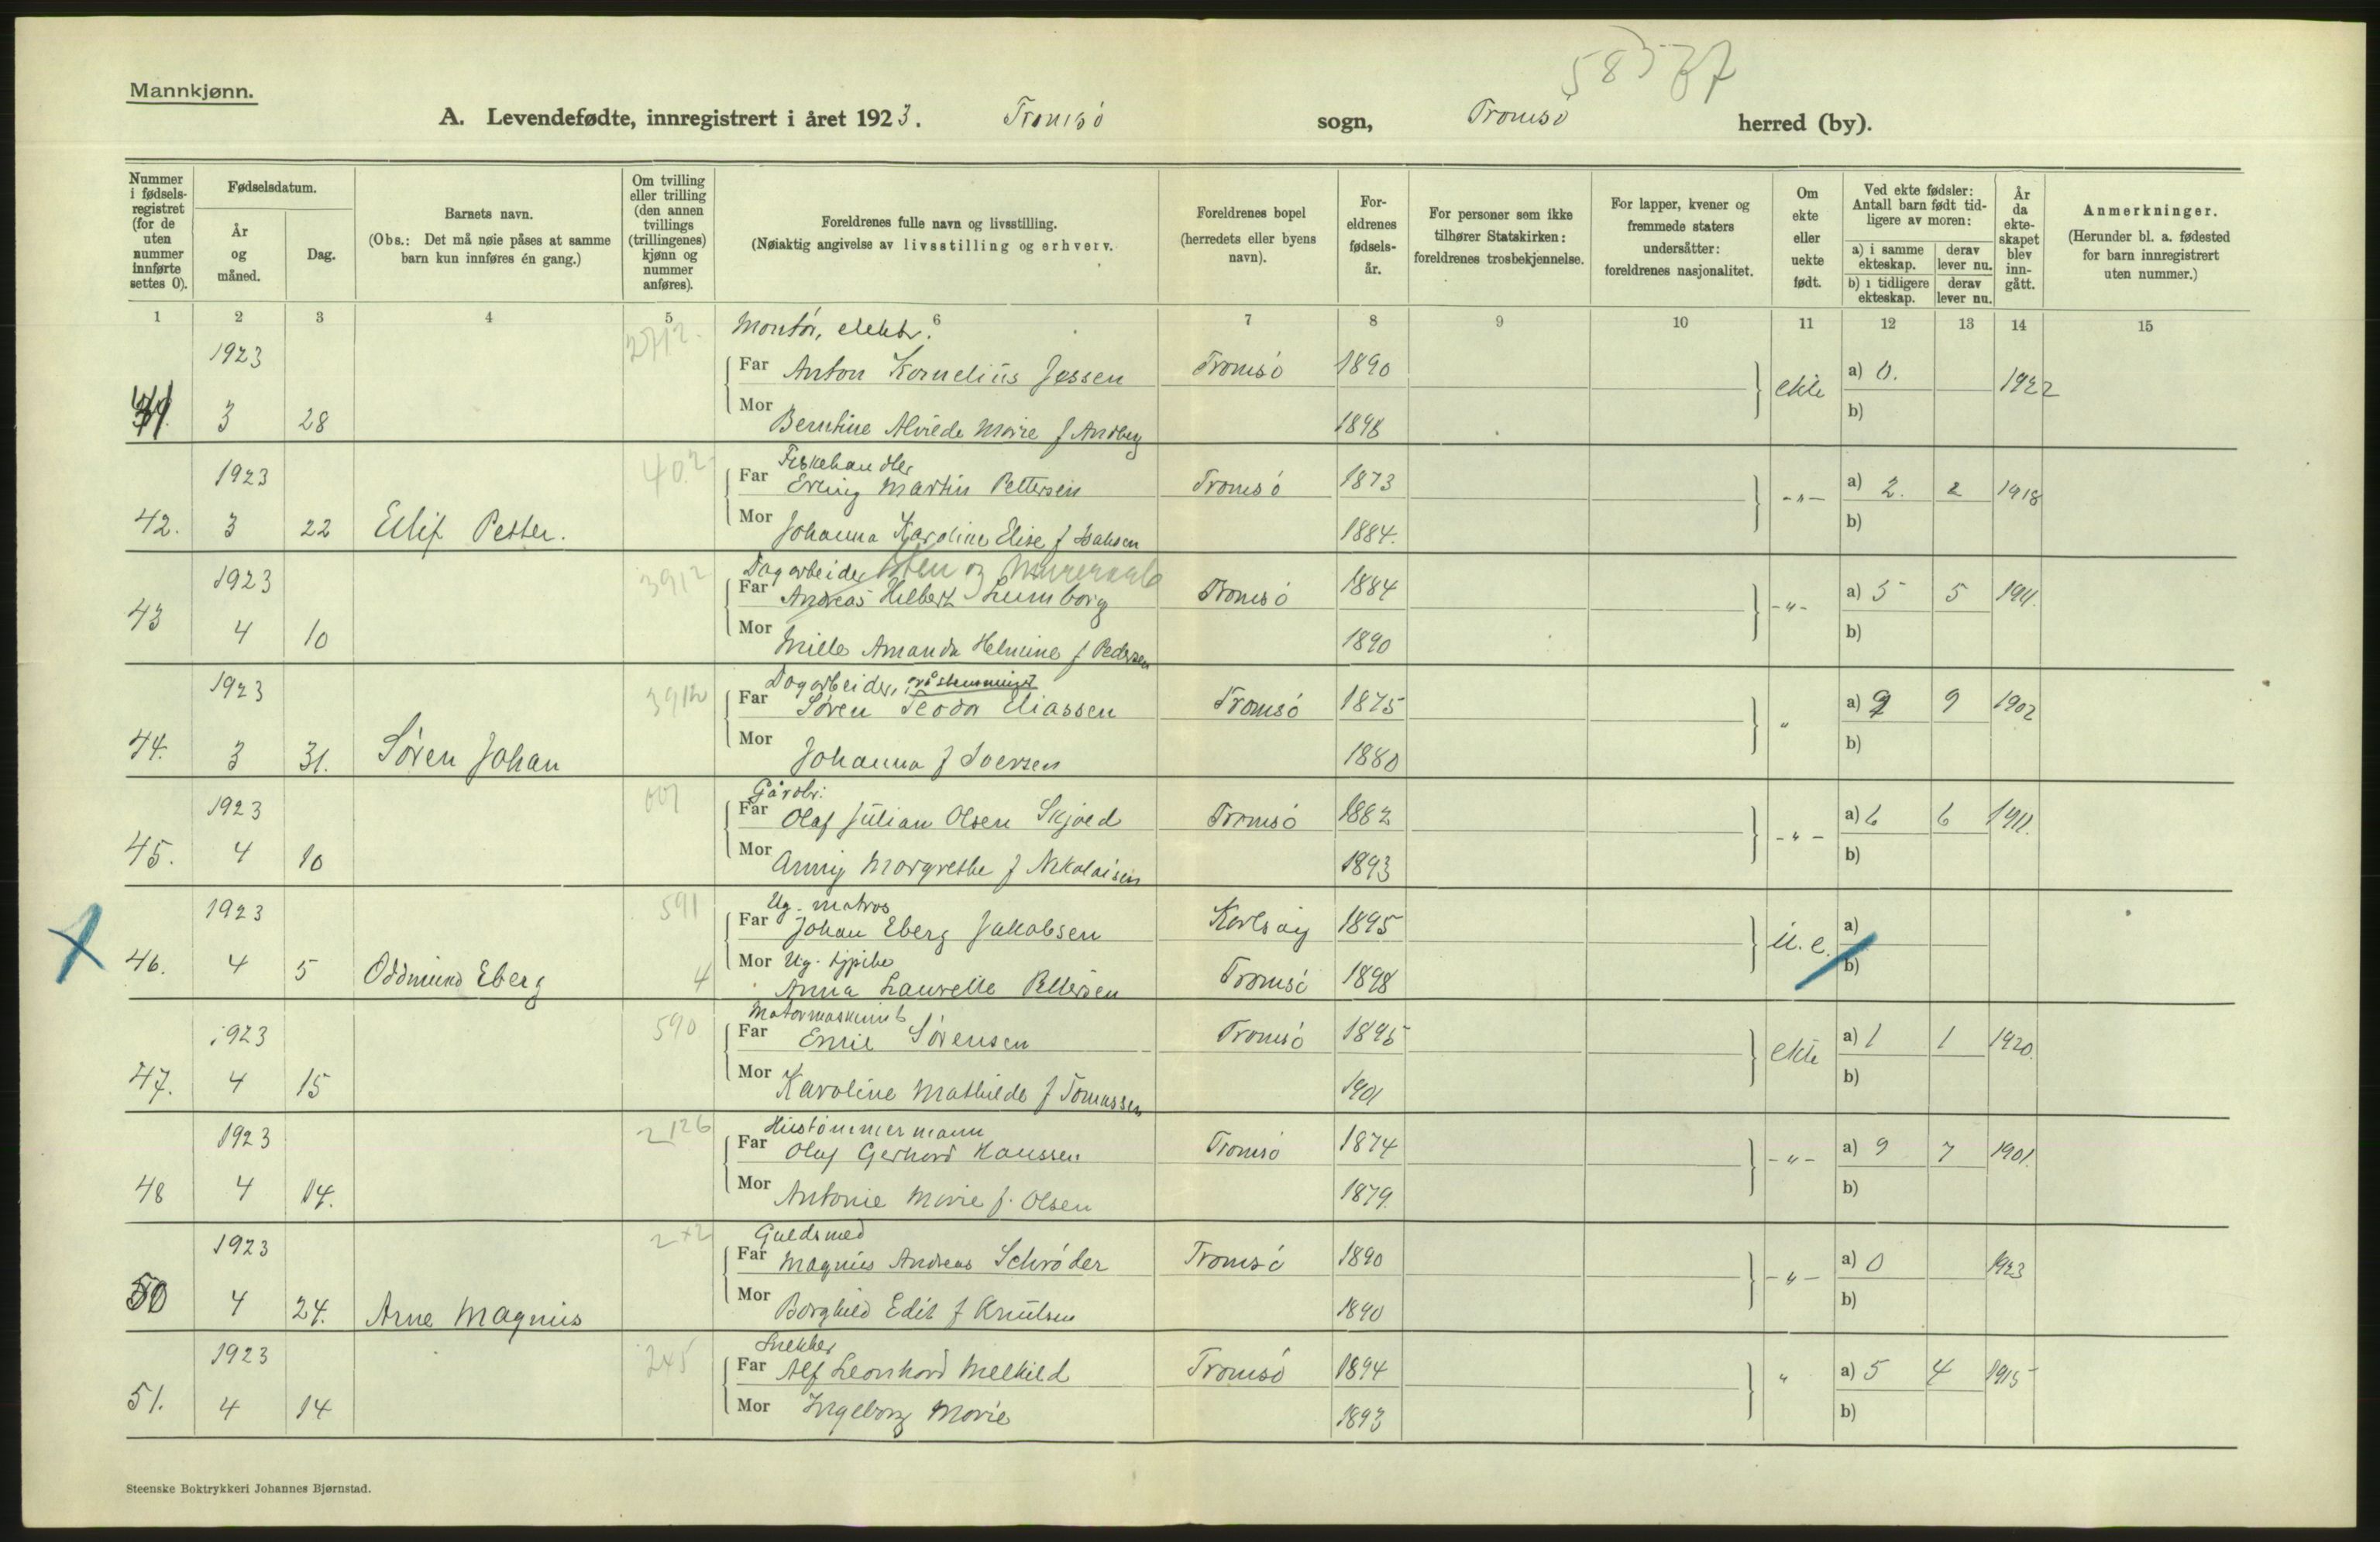 58537
Mannkjønn.
A. Levendefødte, innregistrert i året 1923. Tromsö sogn, Tromsö herred (by).
Nummer i fødsels-registret (for de uten nummer innførte settes 0).
Fødselsdatum.
År og måned.
Dag.
Barnets navn.
(Obs.: Det må nøie påses at samme barn kun innføres én gang.)
Om tvilling eller trilling (den annen tvillings (trillingenes) kjønn og nummer anføres).
Foreldrenes fulle navn og livsstilling.
(Nøiaktig angivelse av livsstilling og erhverv.
Foreldrenes bopel (herredets eller byens navn).
For-eldrenes fødsels-år.
For personer som ikke tilhører Statskirken: foreldrenes trosbekjennelse.
For lapper, kvener og fremmede staters undersåtter: foreldrenes nasjonalitet.
Om ekte eller uekte født.
Ved ekte fødsler: Antall barn født tid-ligere av moren:
a) i samme ekteskap. derav lever nu.
b) i tidligere ekteskap. derav lever nu.
År da ekte-skapet blev inn-gått.
Anmerkninger.
(Herunder bl. a. fødested for barn innregistrert uten nummer.)
1 2 3 4 5 6 7 8 9 10 11 12 13 14 15
2712. Montör, elektr.
1923 Far Anton Kornelius Jessen Tromsö 1890 ekte a) 0. 1922
41. 3 28 Mor Berntine Alvilde Marie f Andberg 1898 b)
402 Fiskehandler
1923 Far Erling Martin Pettersen Tromsö 1873 -"- a) 2. 2 1918
42. 3 22 Eilif Petter. Mor Johanna Karoline Elise f Isaksen 1884. b)
3912 Dagarbeider sten og murerarb
1923 Far Andreas Hilbert Lumborg Tromsö 1884 -"- a) 5 5 1911.
43 4 10 Mor Mille Amanda Helmine f Pedersen 1890 b)
3912 Dagarbeider,
1923 Far Sören Teodor Eliassen Tromsö 1875 " a) 9 9 1902
44. 3 31. Sören Johan Mor Johanna f Iversen 1880 b)
001 Gårdbr:
1923 Far Olaf Julian Olsen Skjæld Tromsö 1882 -"- a) 6 6 1911.
45. 4 10 Mor Anny Margrethe f Nikolaisen 1893 b)
591 Ug. matros
1923 Far Johan Eberg Jakobsen Karlsöy 1895 u.e. a)
46. 4 5 Oddmund Eberg 4 Mor Ug. tjpike Anna Laurelle Pettersen Tromsö 1898 b)
590 Motormaskinist
1923 Far Emil Sörensen Tromsö 1895 ekte a) 1 1 1920.
47. 4 15 Mor Karoline Mathilde f Tomassen 1901 b)
2126 Hustömmermann
1923 Far Olaf Gerhard Hanssen Tromsö 1874 -"- a) 9 7 1901.
48 4 14. Mor Antonie Marie f. Olsen 1879. b)
2x2 Guldsmed
1923 Far Magnus Andreas Schröder Tromsö 1890 -"- a) 0 1923
50 4 24. Arne Magnus Mor Borghild Edit f Knutsen 1890 b)
245 Snekker
1923 Far Alf Leonhard Melkild Tromsö 1894 " a) 5 4 1915
51. 4 14 Mor Ingeborg Marie 1893 b)
Steenske Boktrykkeri Johannes Bjørnstad.